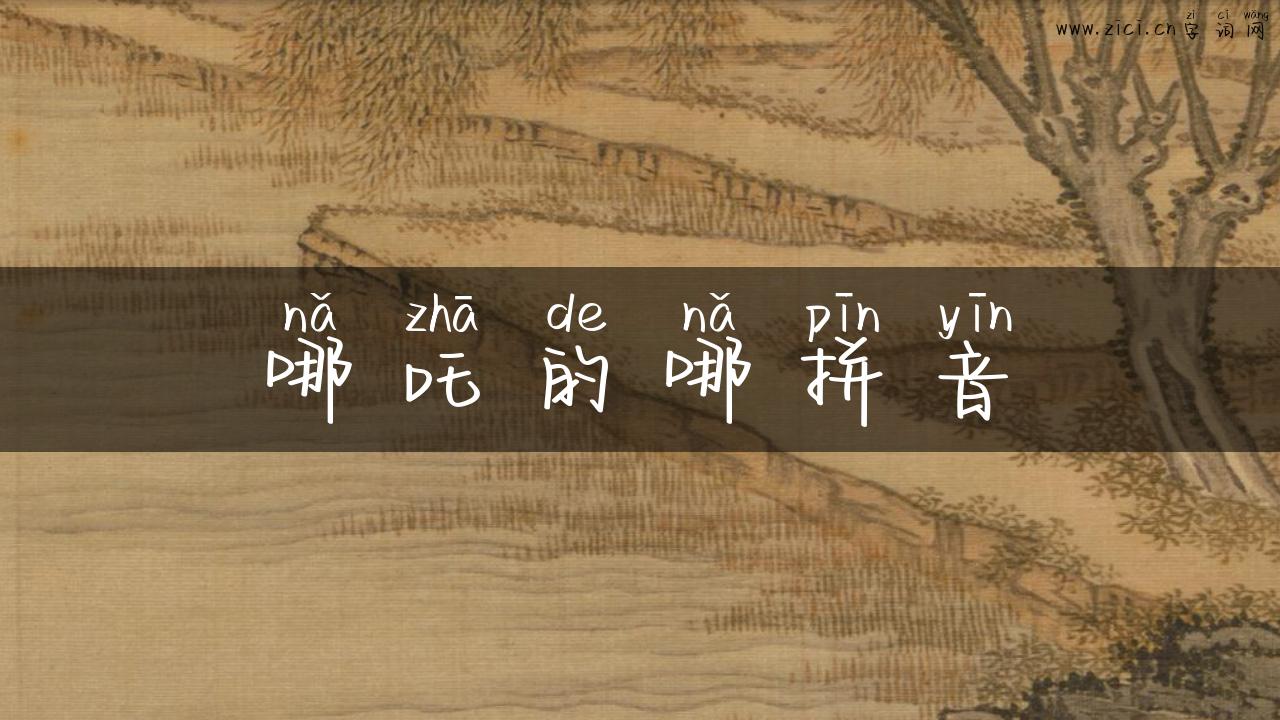 zì cí wǎng
www.zici.cn字词网
nǎ zhā de nǎ pīn yīn
哪吒的哪拼音